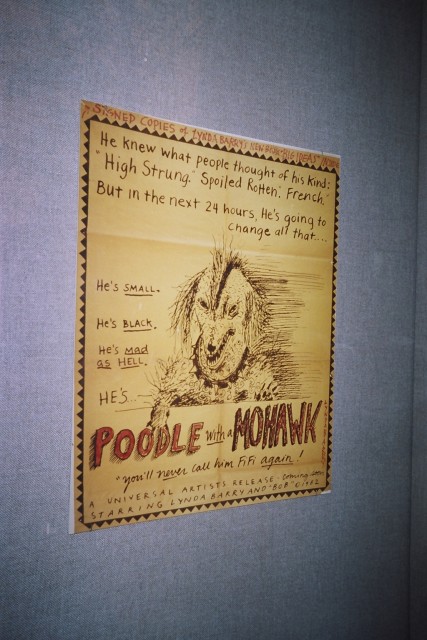 SIGNED COPIES of LYNDA BARRY'S NEW BOOK "BIG IDEAS"
He knew what people thought of his kind:
"High Strung." "Spoiled Rotten." "French."
But in the next 24 hours, He's going to
change all that....
He's SMALL.
He's BLACK.
He's mad
as HELL.
HE'S...
POODLE with a MOHAWK
"you'll never call him FiFi again!"
A UNIVERSAL ARTISTS RELEASE· Coming
STARRING LYNDA BARRY AND "BOB" © 1982